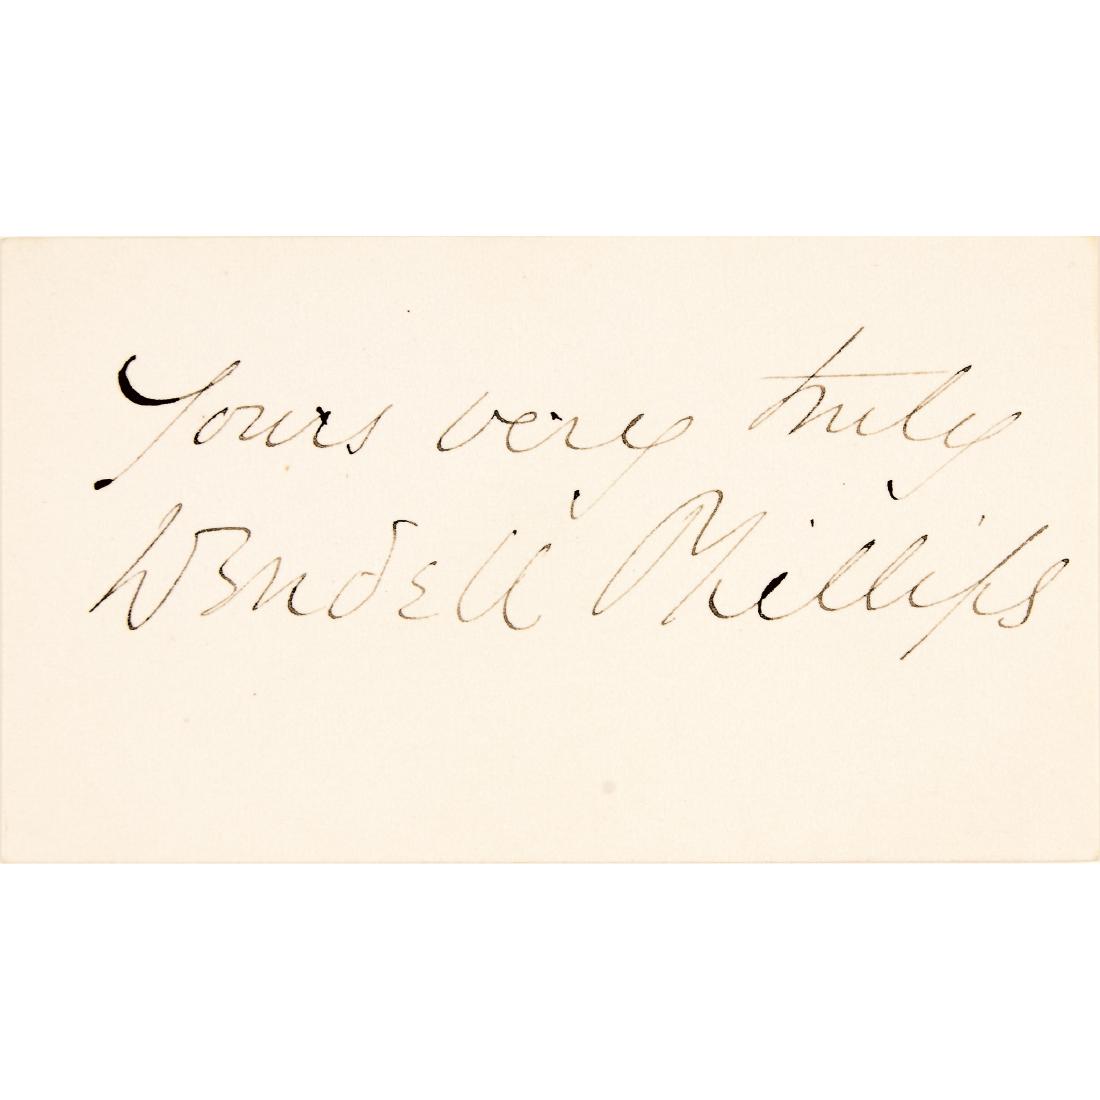 Yours very truly
Wendell Phillips